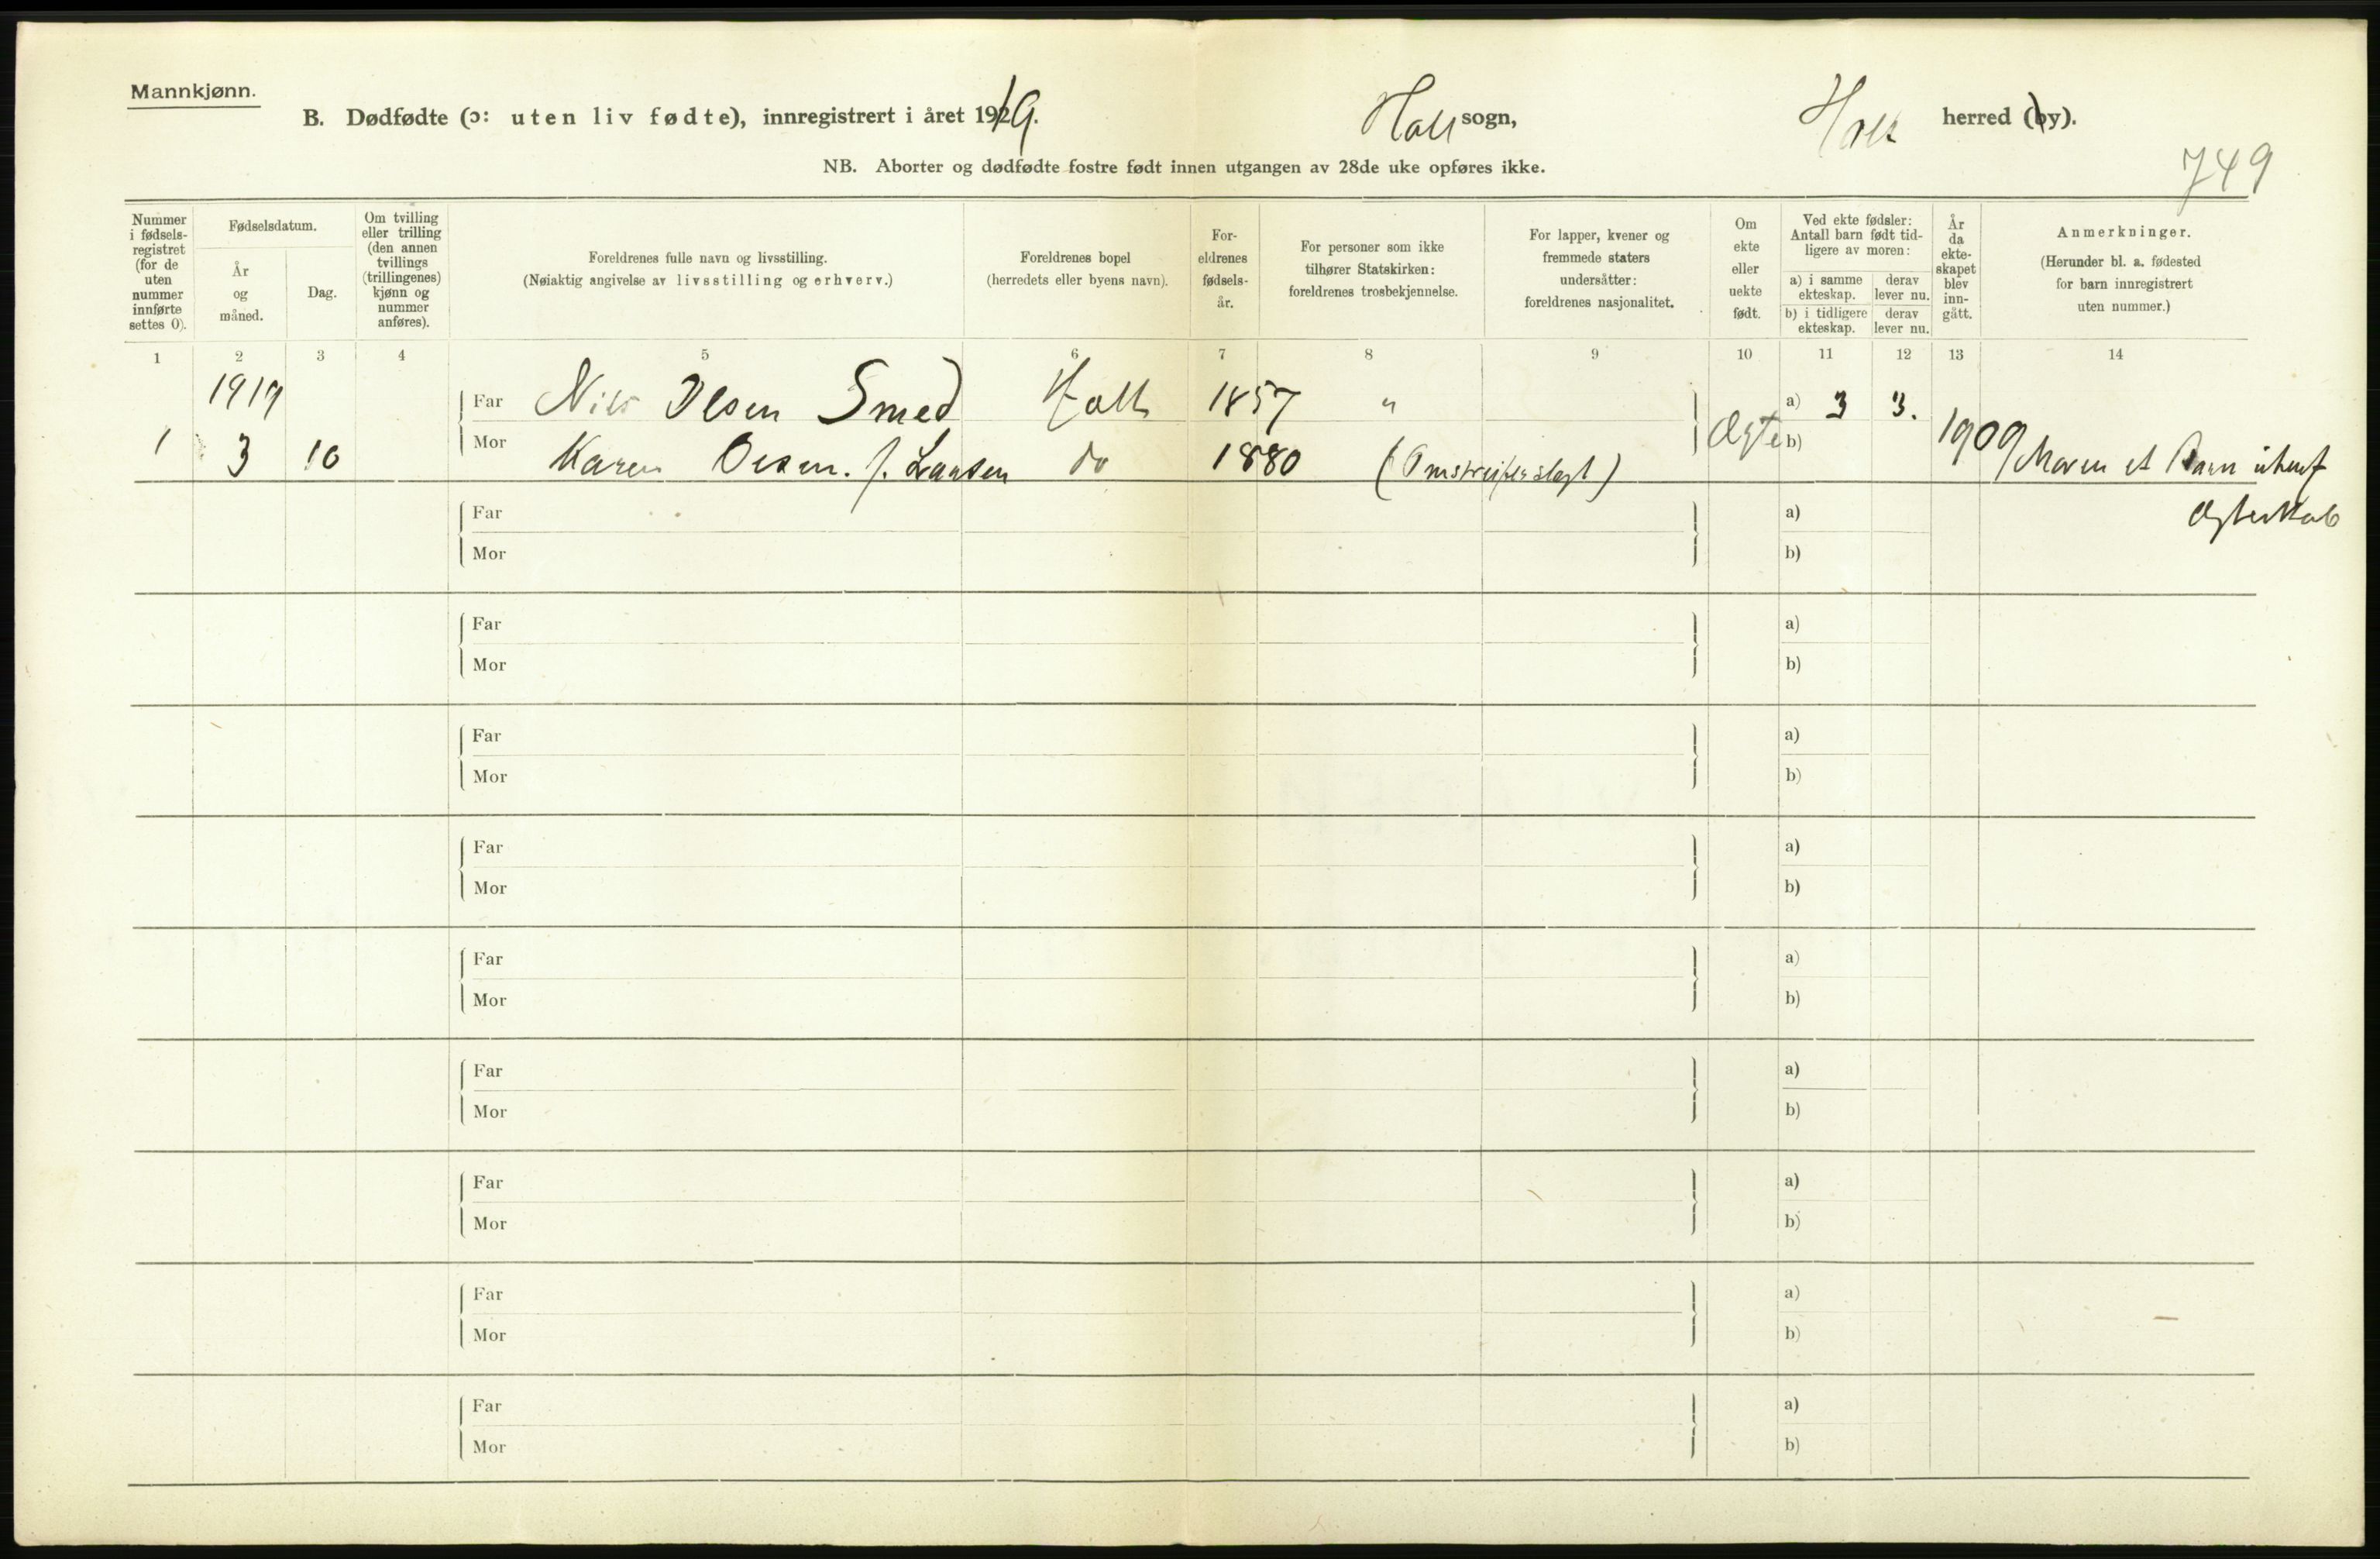 Mannkjønn.
B. Dødfødte (ɔ: uten liv fødte), innregistrert i året 1919. Holt sogn, Holt herred (by).
NB. Aborter og dødfødte fostre født innen utgangen av 28de uke opføres ikke.
749
Nummer
i fødsels-
registret
(for de
uten
nummer
innførte
settes 0).
Fødselsdatum.
År
og
måned.
Dag.
Om tvilling
eller trilling
(den annen
tvillings
(trillingenes)
kjønn og
nummer
anføres).
Foreldrenes fulle navn og livsstilling.
(Nøiaktig angivelse av livsstilling og erhverv.)
Foreldrenes bopel
(herredets eller byens navn).
For-
eldrenes
fødsels-
år.
For personer som ikke
tilhører Statskirken:
foreldrenes trosbekjennelse.
For lapper, kvener og
fremmede staters
undersåtter:
foreldrenes nasjonalitet.
Om
ekte
eller
uekte
født.
Ved ekte fødsler:
Antall barn født tid-
ligere av moren:
a) i samme
ekteskap.
derav
lever nu.
b) i tidligere
ekteskap.
derav
lever nu.
År
da
ekte-
skapet
blev
inn-
gått.
Anmerkninger.
(Herunder bl. a. fødested
for barn innregistrert
uten nummer.)
1 2 3 4 5 6 7 8 9 10 11 12 13 14
1919 Far Nils Olsen Smed Holt 1857 " a) 3 3.
1 3 10 Mor Karen Olsen f. Larsen do 1880 (Omstreiferslegt) Ægte b) 1909 Moren et Barn utenf
Ægteskab
Far a)
Mor b)
Far a)
Mor b)
Far a)
Mor b)
Far a)
Mor b)
Far a)
Mor b)
Far a)
Mor b)
Far a)
Mor b)
Far a)
Mor b)
Far a)
Mor b)